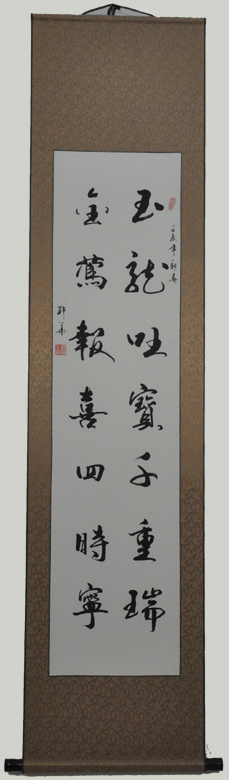 壬辰年新春
玉龍吐寶千重瑞
金鶯報喜四時寧